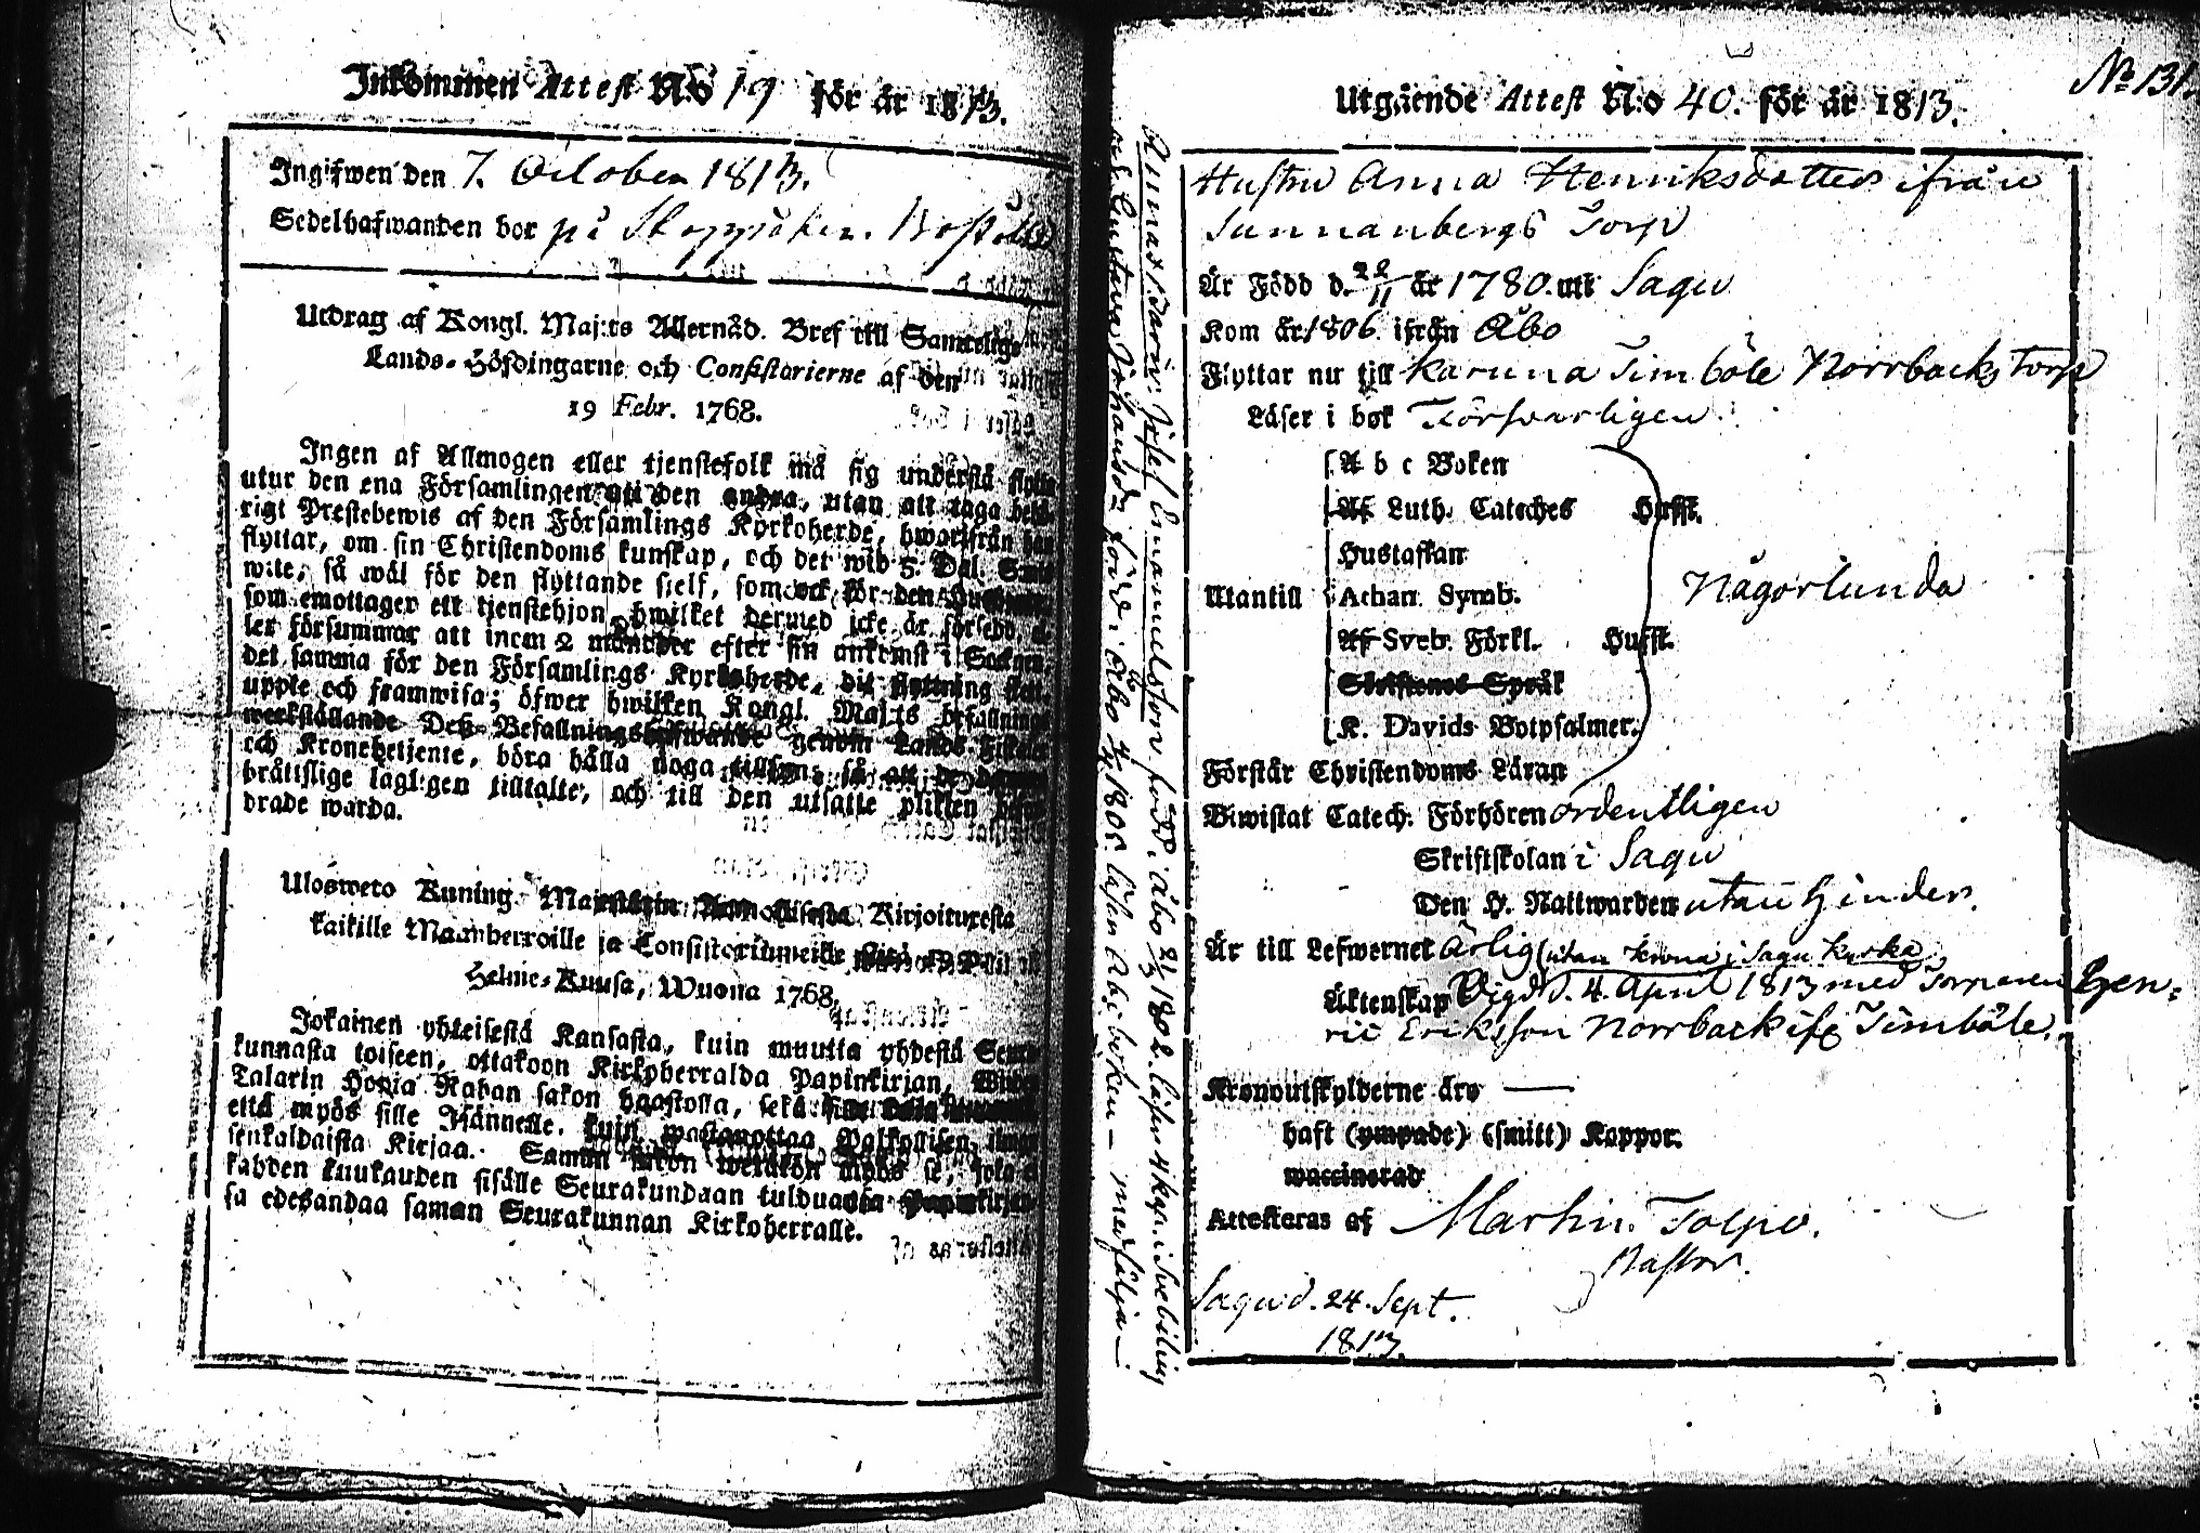 Inkommen Attest No 19 för år 1813.
Ingifwen den 7. October 1813.
Sedelhafwanden bor på
Utdrag af Kongl. Maj:ts Allernåd. Bref till Samtelige
Lands-Höfdingarne och Consistorierne af den
19 Febr. 1768.
Ingen af Allmogen eller tjenstefolk må sig understå flytta
utur den ena Församlingen till den andra, utan att taga behö-
rigt Prestebewis af den Församlings Kyrkoherde, hwarifrån han
flyttar, om sin Christendoms kunskap, och det wid 5. Dal. Smts
wite, så wäl för den flyttande sjelf, som ock för den
som emottager ett tjenstehjon, hwilket dermed icke är försedd, el-
ler försummar att inom 2 månader efter sin ankomst i Socknen,
det samma för den Församlings Kyrkoherde, dit flyttning sker,
uppte och framwisa; öfwer hwilken Kongl. Maj:ts befallning
werkställande Dess Befallningshafwande genom Lands-Fiskaler
och Kronobetjente, böra hålla noga tillsyn, så att de
bråttslige lagligen tilltalte, och till den utsatte plikten
drade warda.
Ulosweto Kuning. Majestetin Armollisesta Kirjoituxesta
kaikille Maanherroille ja Consistoriumeille siitä 19 P.
Helme-Kuusa, Wuona 1768.
Jokainen yhteisestä Kansasta, kuin muutta yhdestä Seura-
kunnasta toiseen, ottakoon Kirkoherralda Papinkirjan, Wiiden
Talarin Hopia Rahan sakon haastolla, sekä
että myös sille Isännelle, kuin wastanottaa Palkollisen, ilman
senkaldaista Kirjaa. Saman sakon wetäkön myös se, joka ei
kahden kuukauden sisälle Seurakundaan tulduansa Papinkirjan-
sa edesandaa saman Seurakunnan Kirkoherralle.
No 131.
Utgående Attest No 40. för år 1813.
Hustru Anna Henriksdotter ifrån
Sunnanbergs Torp
Är Född d. 22/11 år 1780. uti Sagu
Kom år 1806 ifrån Åbo
Flyttar nu till Karuna Timböle Norrbacks Torp
Läser i bok Försvarligen
A b c Boken
Af Luth. Cateches Hufft.
Hustaflan
Utantill Athan. Symb. Någorlunda
Af Sveb. Förkl. Hufft.
Skriftenes Språk
K. Davids Botpsalmer.
Förstår Christendoms Läran
Biwistat Catech. Förhören ordentligen
Skriftskolan i Sagu
Den H. Nattwarden utan hinder.
Är till Lefwernet Ärlig (utan krona i Sagu Kyrka
Äktenskap Vigd d. 4. April 1813 med Torparen Hen-
ric Eriksson Norrback ifr Timböle.
Kronoutskylderne äro —
haft (ympade) (smitt) Koppor.
waccinerad
Attesteras af Martin Tolpo.
Pastor.
Sagu d. 24. Sept.
1813.
Annas Barn: Josef Emanuelsson född i Åbo 21/3 1802. läser 4 kap. i Svebilius
född i Åbo 4/4 1805. läser Abc boken — medfölja —